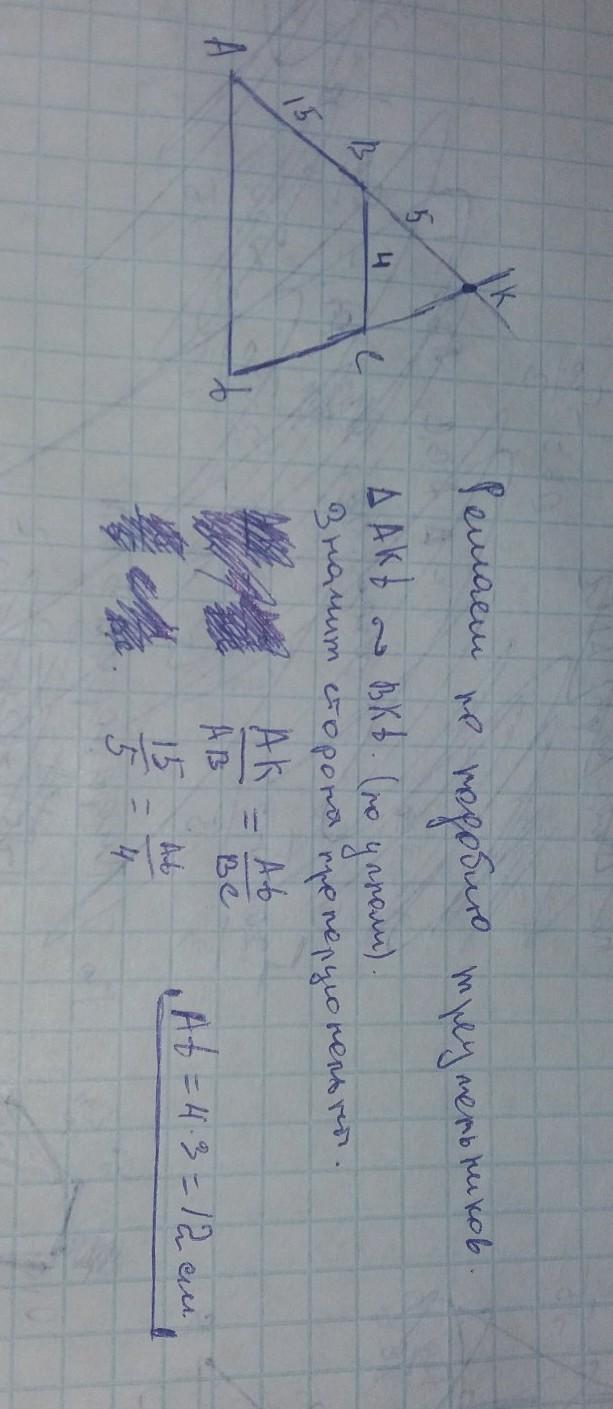 A
15
B
5
K
4
C
D
Решаем по подобию треугольников.
Δ AKD ~ BKC. (по углам).
Значит стороны пропорциональны.
AK/AB = AD/BC
15/5 = AD/4
AD = 4·3 = 12 см.